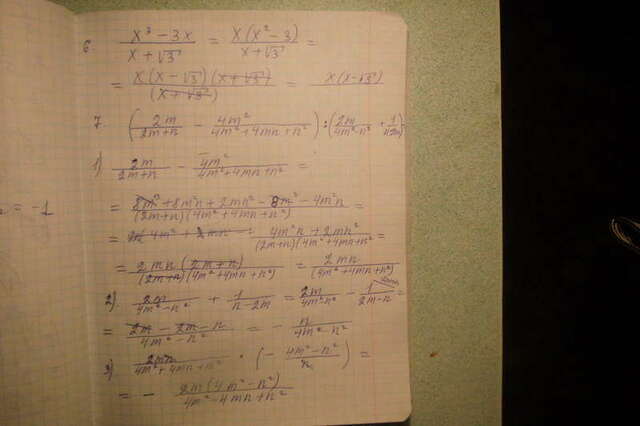 6. (x³ - 3x)/(x + √3) = x(x² - 3)/(x + √3) =
= x(x - √3)(x + √3)/(x + √3) = x(x - √3)
7. (2m/(2m+n) - 4m²/(4m² + 4mn + n²)) : (2m/(4m² - n²) + 1/(n-2m))
1) 2m/(2m+n) - 4m²/(4m² + 4mn + n²) =
= (8m³ + 8m²n + 2mn² - 8m³ - 4m²n)/((2m+n)(4m² + 4mn + n²)) =
= (4m²n + 2mn²)/((2m+n)(4m² + 4mn + n²)) =
= 2mn(2m+n)/((2m+n)(4m² + 4mn + n²)) = 2mn/(4m² + 4mn + n²)
2). 2m/(4m² - n²) + 1/(n-2m) = 2m/(4m² n²) - 1/(2m-n) =
= (2m - 2m - n)/(4m² - n²) = - n/(4m² - n²)
3) 2mn/(4m² + 4mn + n²) · (- (4m² - n²)/n) =
= - 2m(4m² - n²)/(4m² - 4mn + n²)
= -1